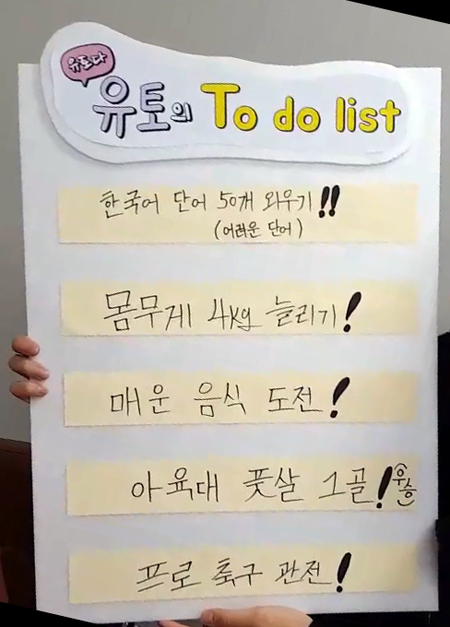 유토다
유토의 To do list
한국어 단어 50개 외우기!!
(어려운 단어)
몸무게 4kg 늘리기!
매운 음식 도전!
아육대 풋살 1골! 우승
프로 축구 관전!